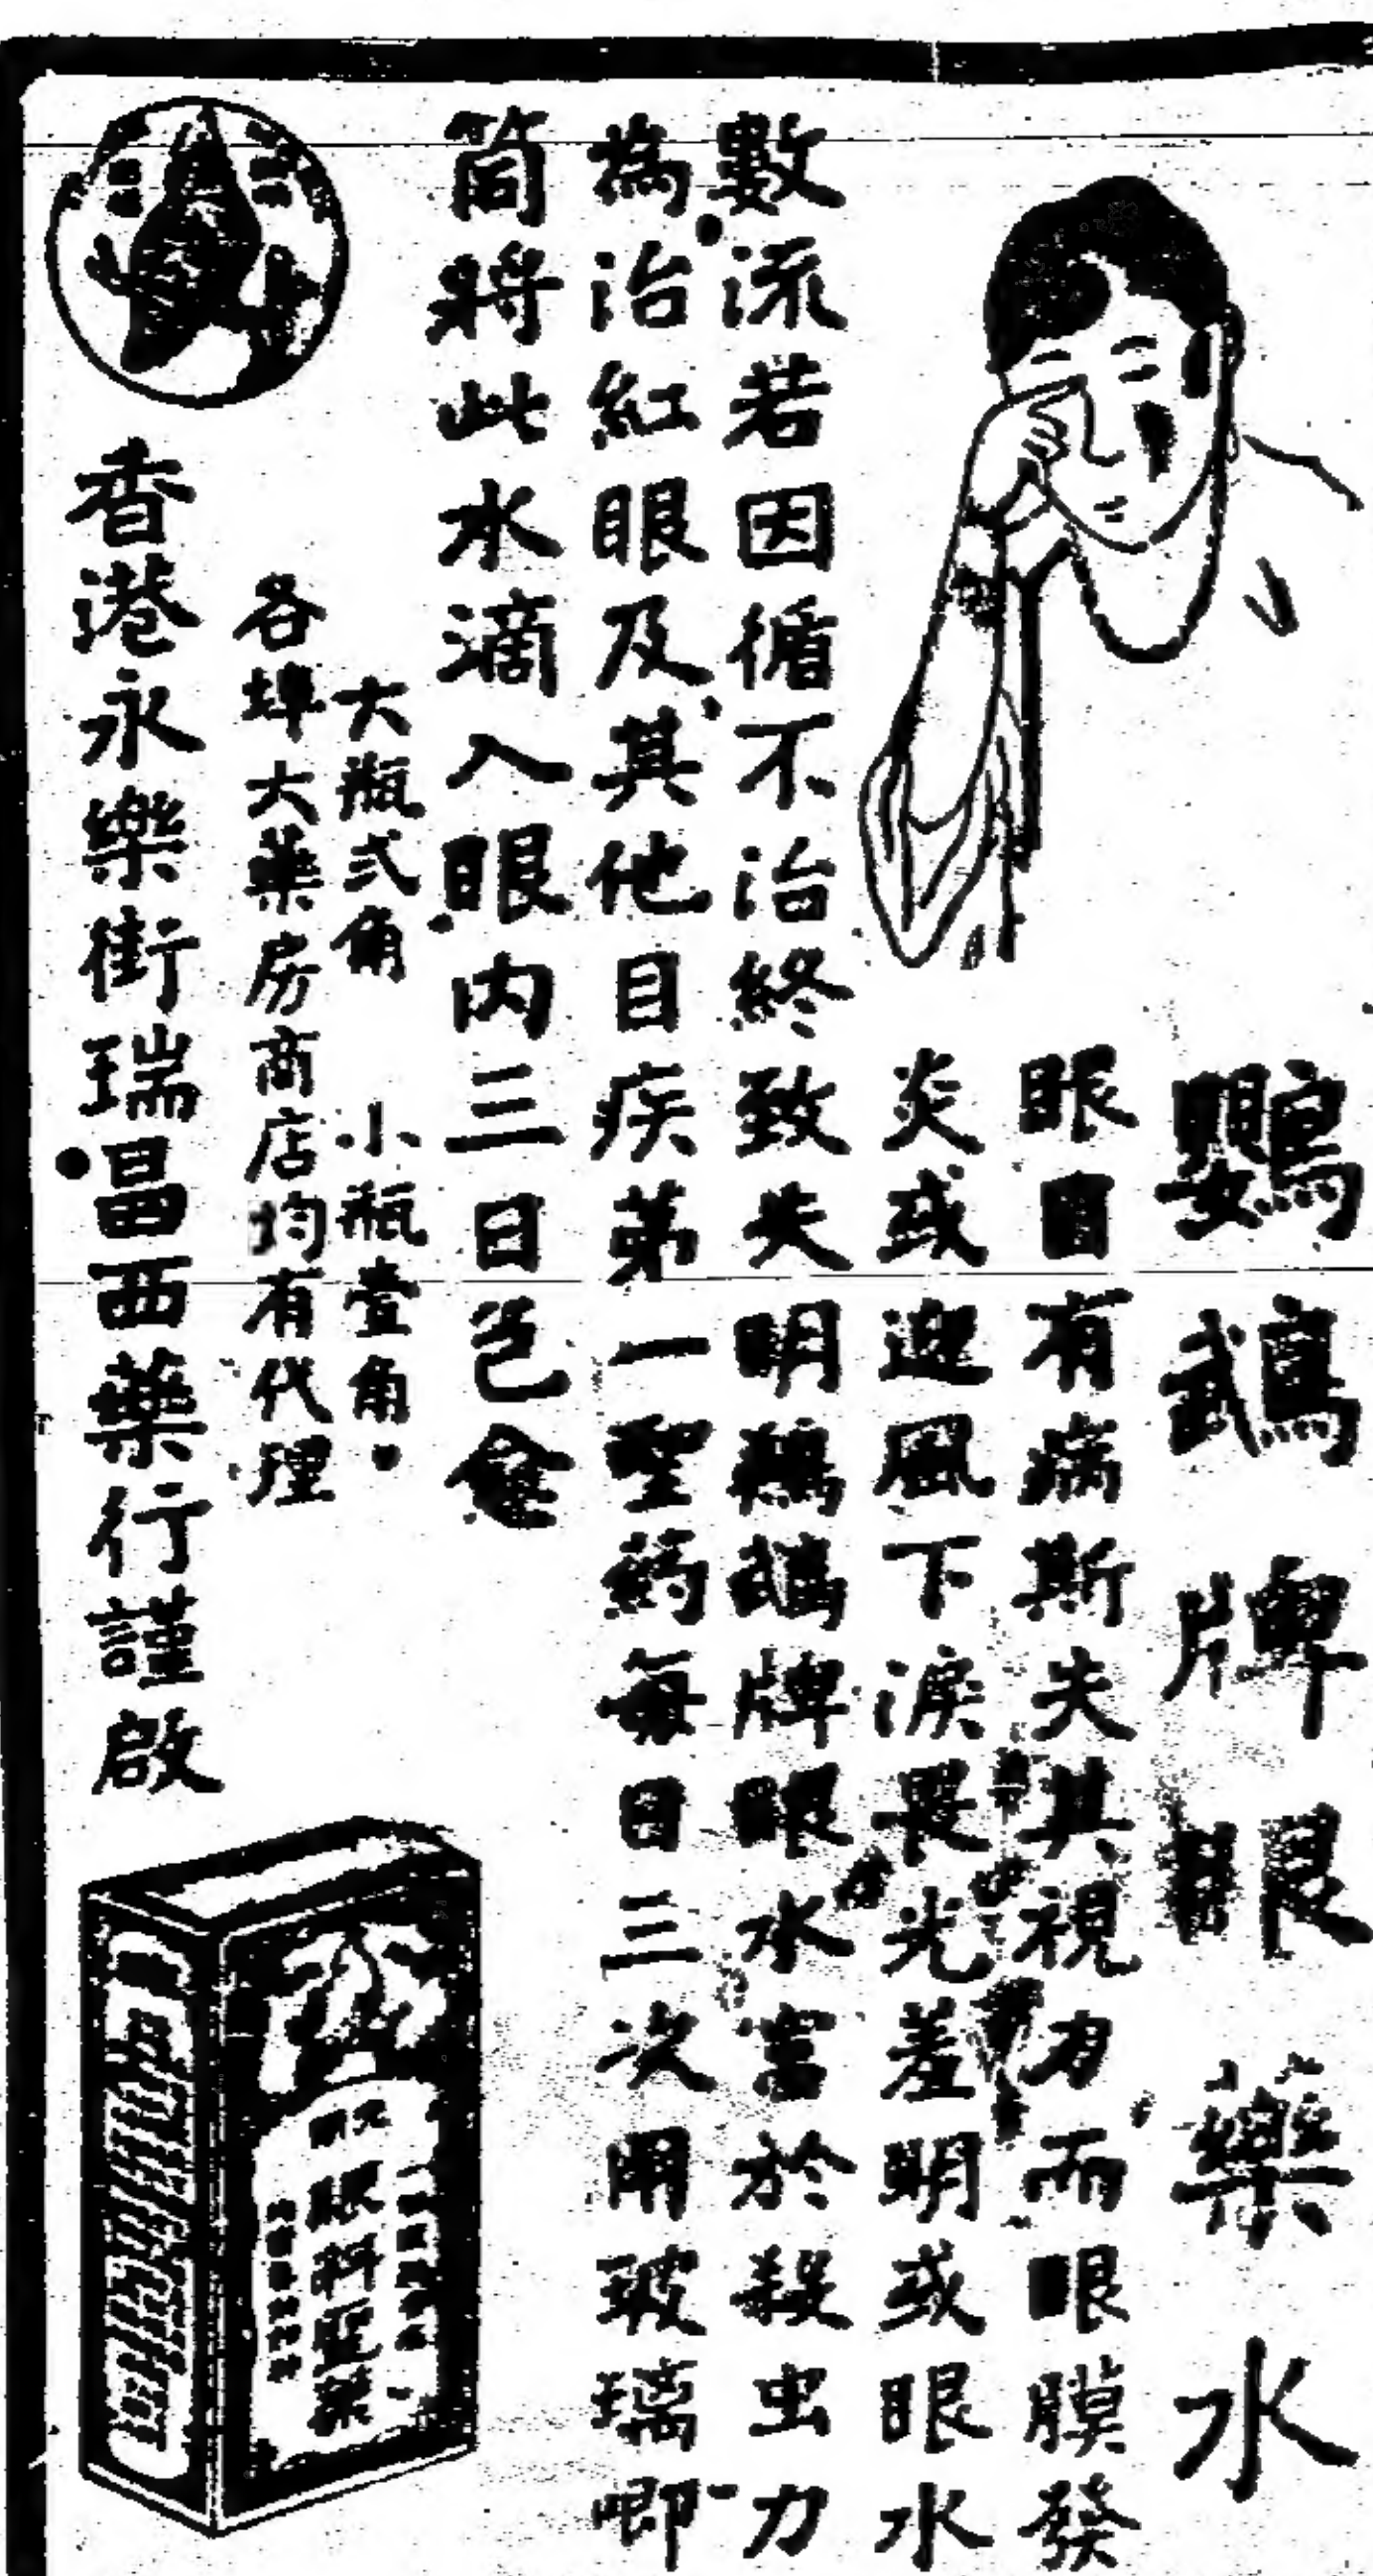 鸚鵡牌眼藥水
眼目有病斯失其視力而眼膜發
炎或迎風下淚畏光羞明或眼水
數流若因循不治終致失明鸚鵡牌眼水富於殺虫力
為治紅眼及其他目疾第一聖药每日三次用玻璃唧
筒將此水滴入眼內三日包愈
大瓶弍角 小瓶壹角
各埠大藥房商店均有代理
香港永樂街瑞昌西藥行謹啟
眼科聖藥